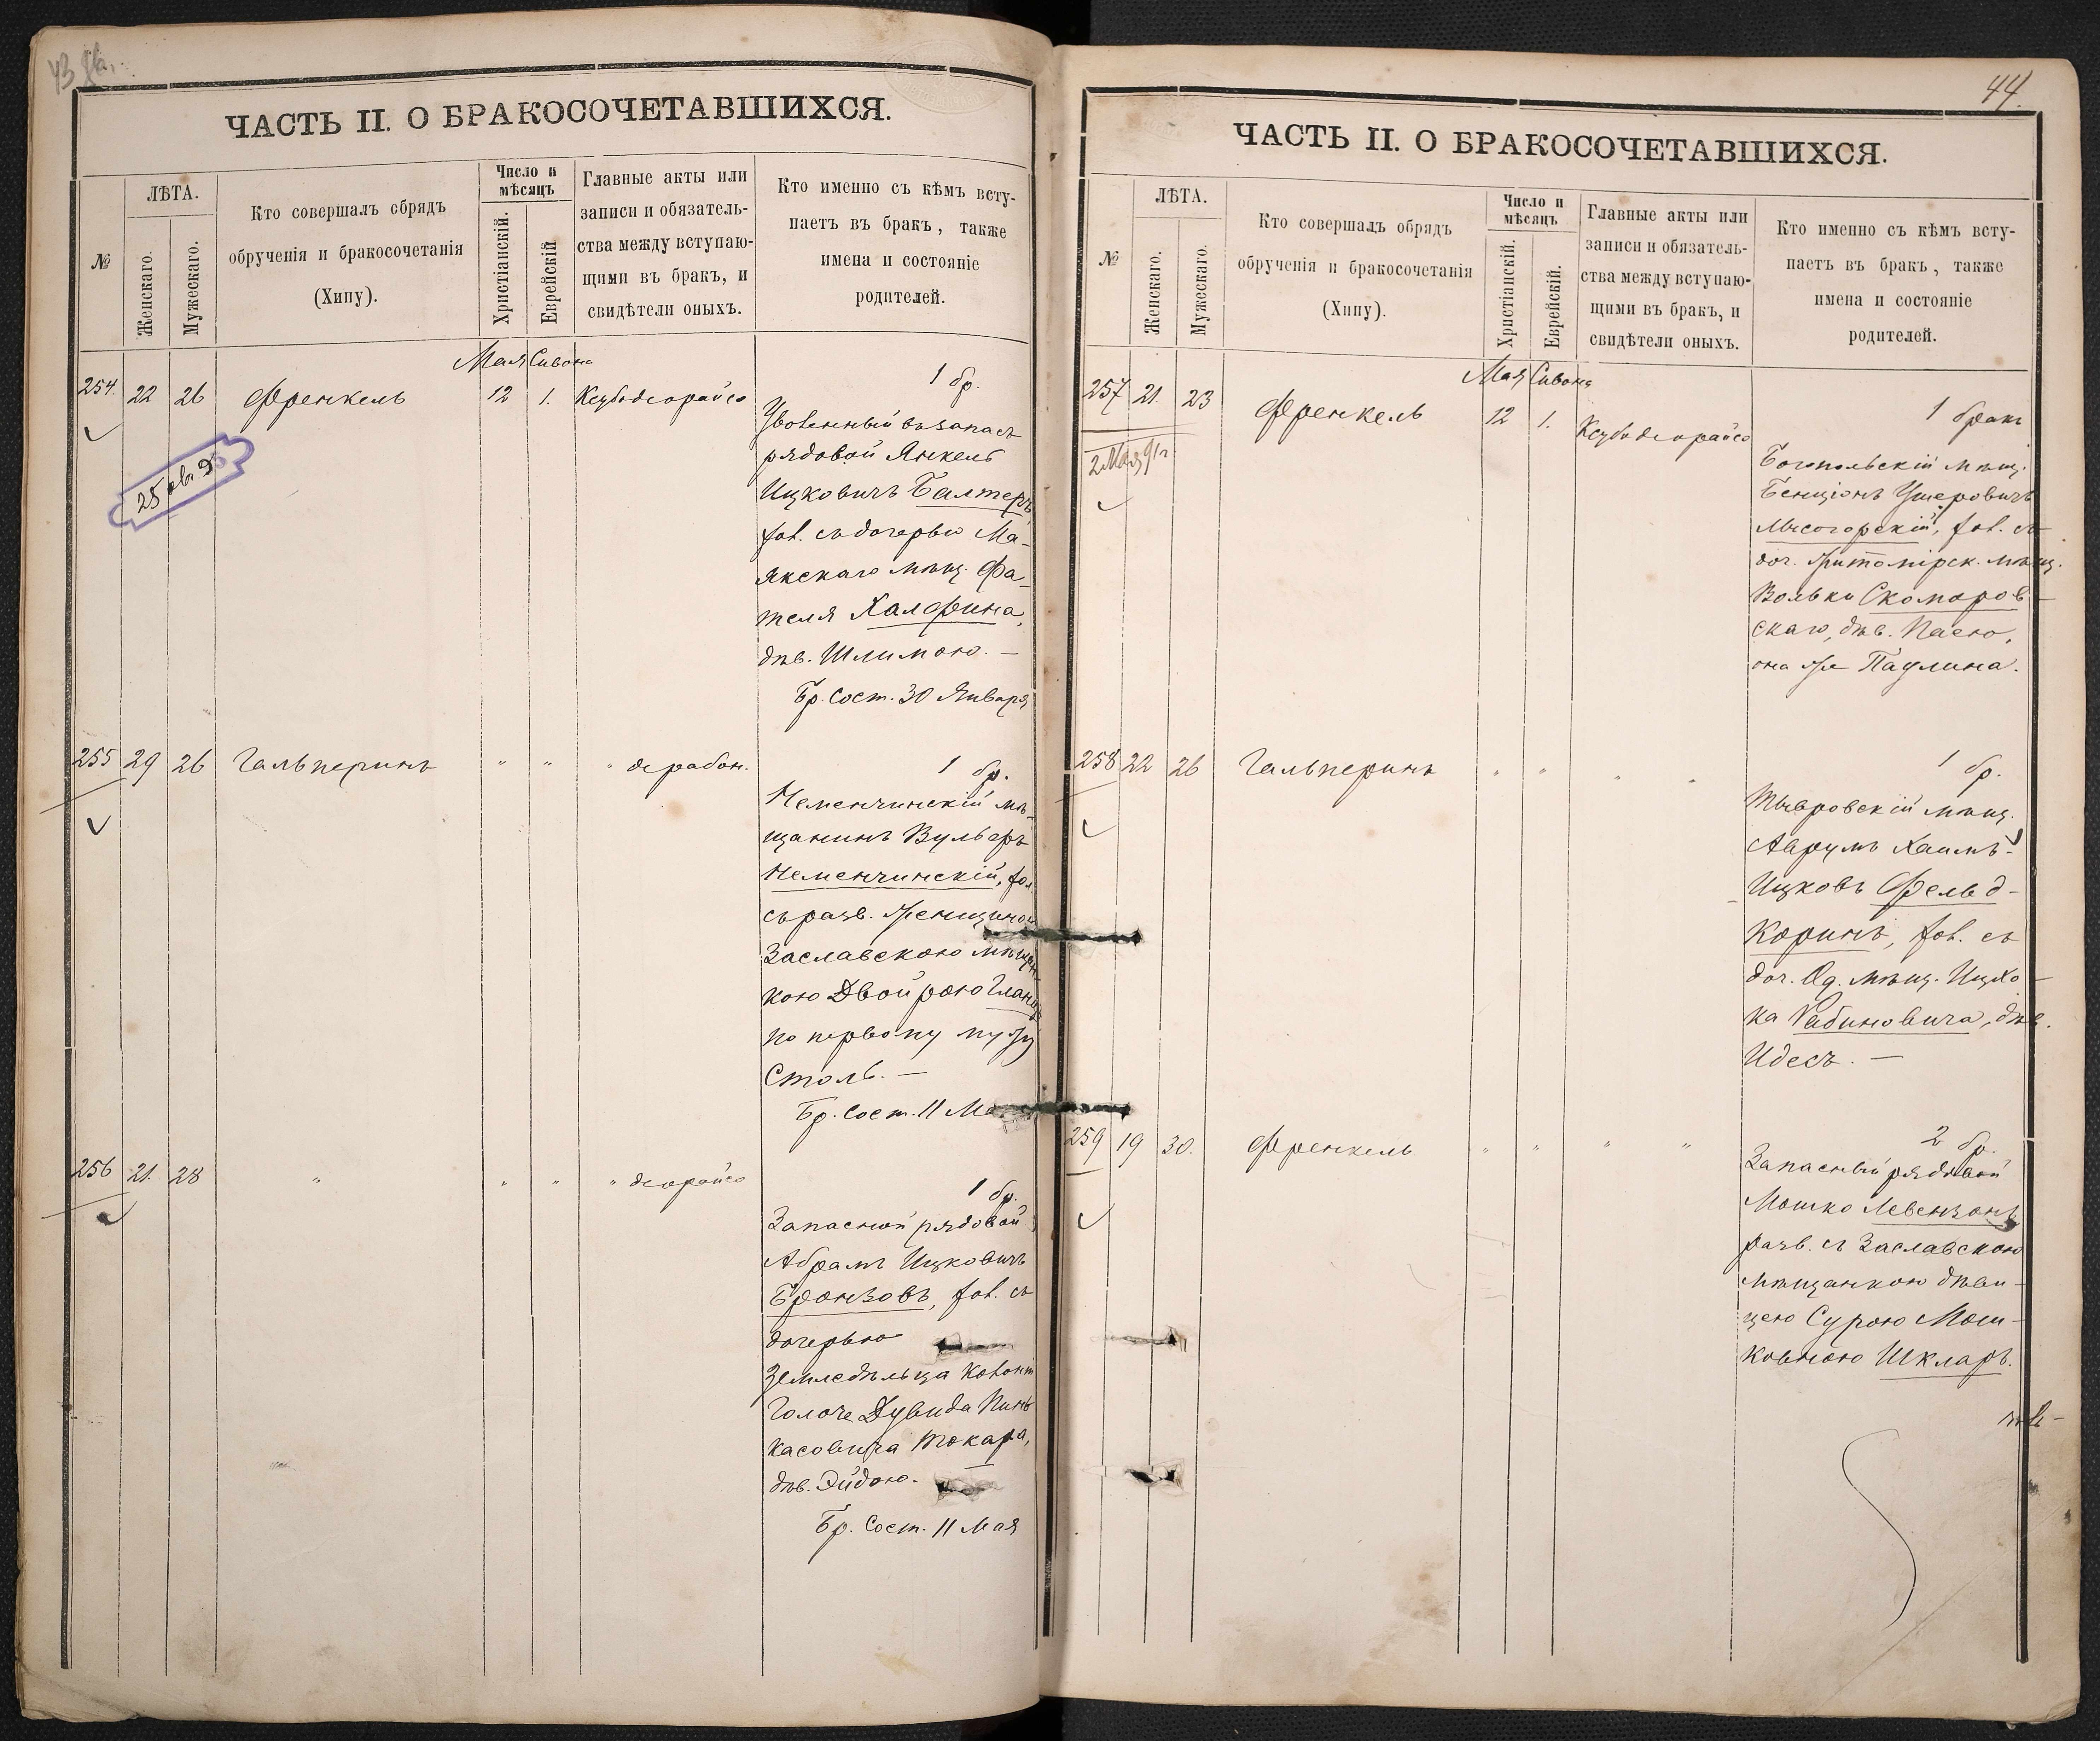 ЧАСТЬ II. О БРАКОСОЧЕТАВШИХСЯ.
№
ЛѢТА.
Женскаго.
Мужескаго.
Кто совершалъ обрядъ
обрученія и бракосочетанія
(Хипу).
Число и
мѣсяцъ
Христіанскій.
Еврейскій
Главные акты или
записи и обязатель-
ства между вступаю-
щими въ бракъ, и
свидѣтели оныхъ.
Кто именно съ кѣмъ всту-
паетъ въ бракъ, также
имена и состояніе
родителей.
Мая Сивона
254. 22 26 Френкель 12 1. Кезубодеорайсо
1 бр.
Уволенный въ запасъ
рядовой Янкель
Ицковичъ Балтеръ
хол. съ дочерью Ма-
якскаго мѣщ. Фа-
теля Халфина,
дѣв. Шлимою. —
Бр. Сост. 30 Января
255 29 26 Гальперинъ " " " дерабон.
1 бр.
Неменчинскій мѣ-
щанинъ Вульфъ
Неменчинскій, хол.
съ разв. женщиною
Заславскою мѣщан
кою Двойрою Гланц
по первому мужу
Столь. —
Бр. Сост. 11 Мая
256 21. 28 " " " " деорайсо
1 бр.
Запасной рядовой
Абрамъ Ицковичъ
Бронзовъ, хол. съ
дочерью
Земледѣльца Колоніи
Голоче Дувида Пинь
касовича Токаря,
дѣв. Эйдою.
Бр. Сост. 11 Мая
44.
ЧАСТЬ II. О БРАКОСОЧЕТАВШИХСЯ.
№
ЛѢТА.
Женскаго.
Мужескаго.
Кто совершалъ обрядъ
обрученія и бракосочетанія
(Хипу).
Число и
мѣсяцъ
Христіанскій.
Еврейскій.
Главные акты или
записи и обязатель-
ства между вступаю-
щими въ бракъ, и
свидѣтели оныхъ.
Кто именно съ кѣмъ всту-
паетъ въ бракъ, также
имена и состояніе
родителей.
Мая Сивона
257 21. 23 Френкель 12 1. Кезубодеорайсо
2 Мая 91 г
1 бракъ
Богопольскій мѣщ.
Бенціонъ Ушеровичъ
Лысогорскій, хол. съ
доч. Житомірск. мѣщ.
Вольки Скоморов-
скаго, дѣв. Пасею,
она же Паулина.
258 22 26 Гальперинъ " " " "
1 бр.
Тывровскій мѣщ.
Аврумъ Хаимъ-
Ицковъ Фельд-
Коринъ, хол. съ
доч. Од. мѣщ. Ицхо-
ка Рабиновича, дѣв.
Идесъ. —
259 19 30. Френкель " " " "
2 бр.
Запасный рядовой
Мошко Левензонъ
разв. съ Заславскою
мѣщанкою дѣви-
цею Сурою Мош-
ковною Шкларъ.